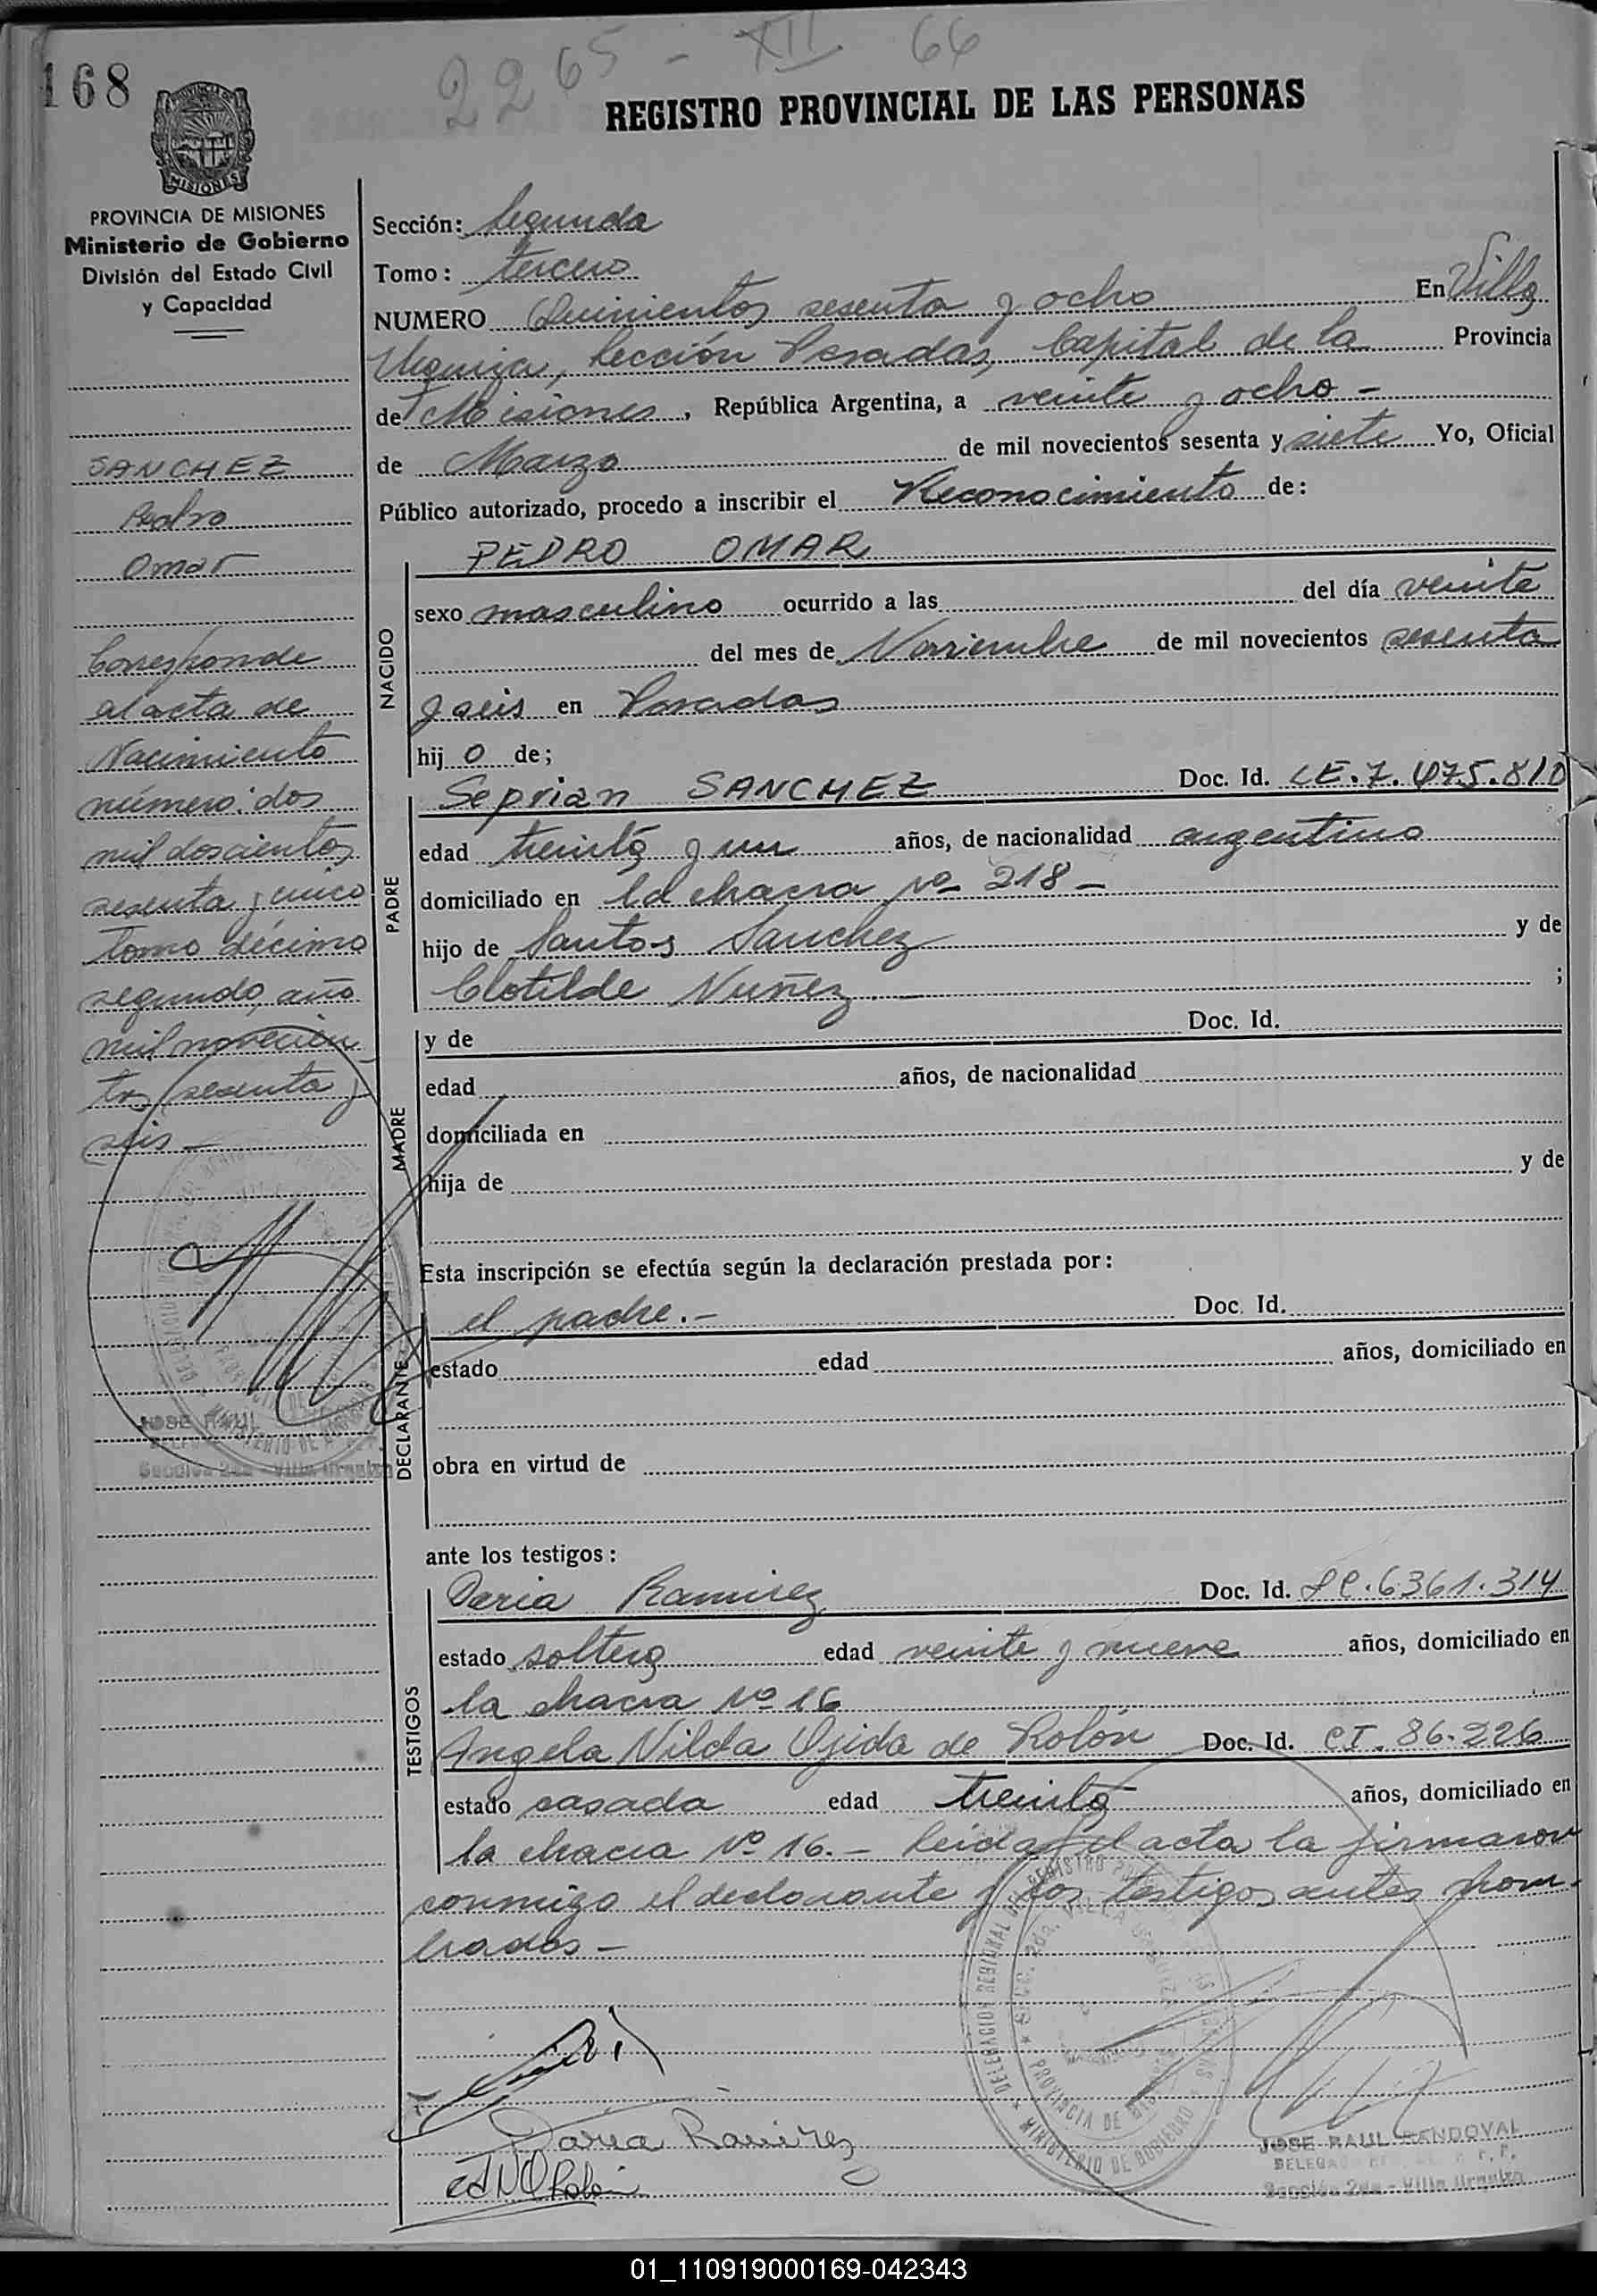 168
2265 - XII 66
REGISTRO PROVINCIAL DE LAS PERSONAS
MISIONES
PROVINCIA DE MISIONES
Ministerio de Gobierno
División del Estado Civil
y Capacidad
SANCHEZ
Pedro
Omar
Corresponde
al acta de
Nacimiento
número: dos
mil doscientos
sesenta y cinco
tomo décimo
segundo, año
mil novecien
tos sesenta y
seis -
JOSE RAUL
Sección 2da - Villa Urquiza
Sección: Segunda
Tomo: tercero
NUMERO Quinientos sesenta y ocho En Villa
Urquiza, Sección Posadas, Capital de la Provincia
de Misiones, República Argentina, a veinte y ocho -
de Marzo de mil novecientos sesenta y siete Yo, Oficial
Público autorizado, procedo a inscribir el Reconocimiento de:
PEDRO OMAR
NACIDO
sexo masculino ocurrido a las del día veinte
del mes de Noviembre de mil novecientos sesenta
y seis en Posadas
hij o de;
PADRE
Seprian SANCHEZ Doc. Id. LE. 7. 475.810
edad treinta y un años, de nacionalidad argentino
domiciliado en la chacra No 218 -
hijo de Santos Sanchez y de
Clotilde Nuñez. - ;
MADRE
y de Doc. Id.
edad años, de nacionalidad
domiciliada en
hija de y de
Esta inscripción se efectúa según la declaración prestada por:
DECLARANTE
el padre.- Doc. Id.
estado edad años, domiciliado en
obra en virtud de
ante los testigos:
TESTIGOS
Daria Ramirez Doc. Id. LC. 6361.314
estado soltera edad veinte y nueve años, domiciliado en
la chacra No 16
Angela Nilda Ojeda de Rolón Doc. Id. CI. 86.226
estado casada edad treinta años, domiciliado en
la chacra No 16. - Leida el acta la firmaron
conmigo el declarante y los testigos antes nom-
brados -
DELEGACION REGIONAL DE REGISTRO
SECC. 2da. VILLA URQUIZA
PROVINCIA DE MISIONES
MINISTERIO DE GOBIERNO
Daria Ramirez
JOSE RAUL SANDOVAL
Sección 2da - Villa Urquiza
01_110919000169-042343